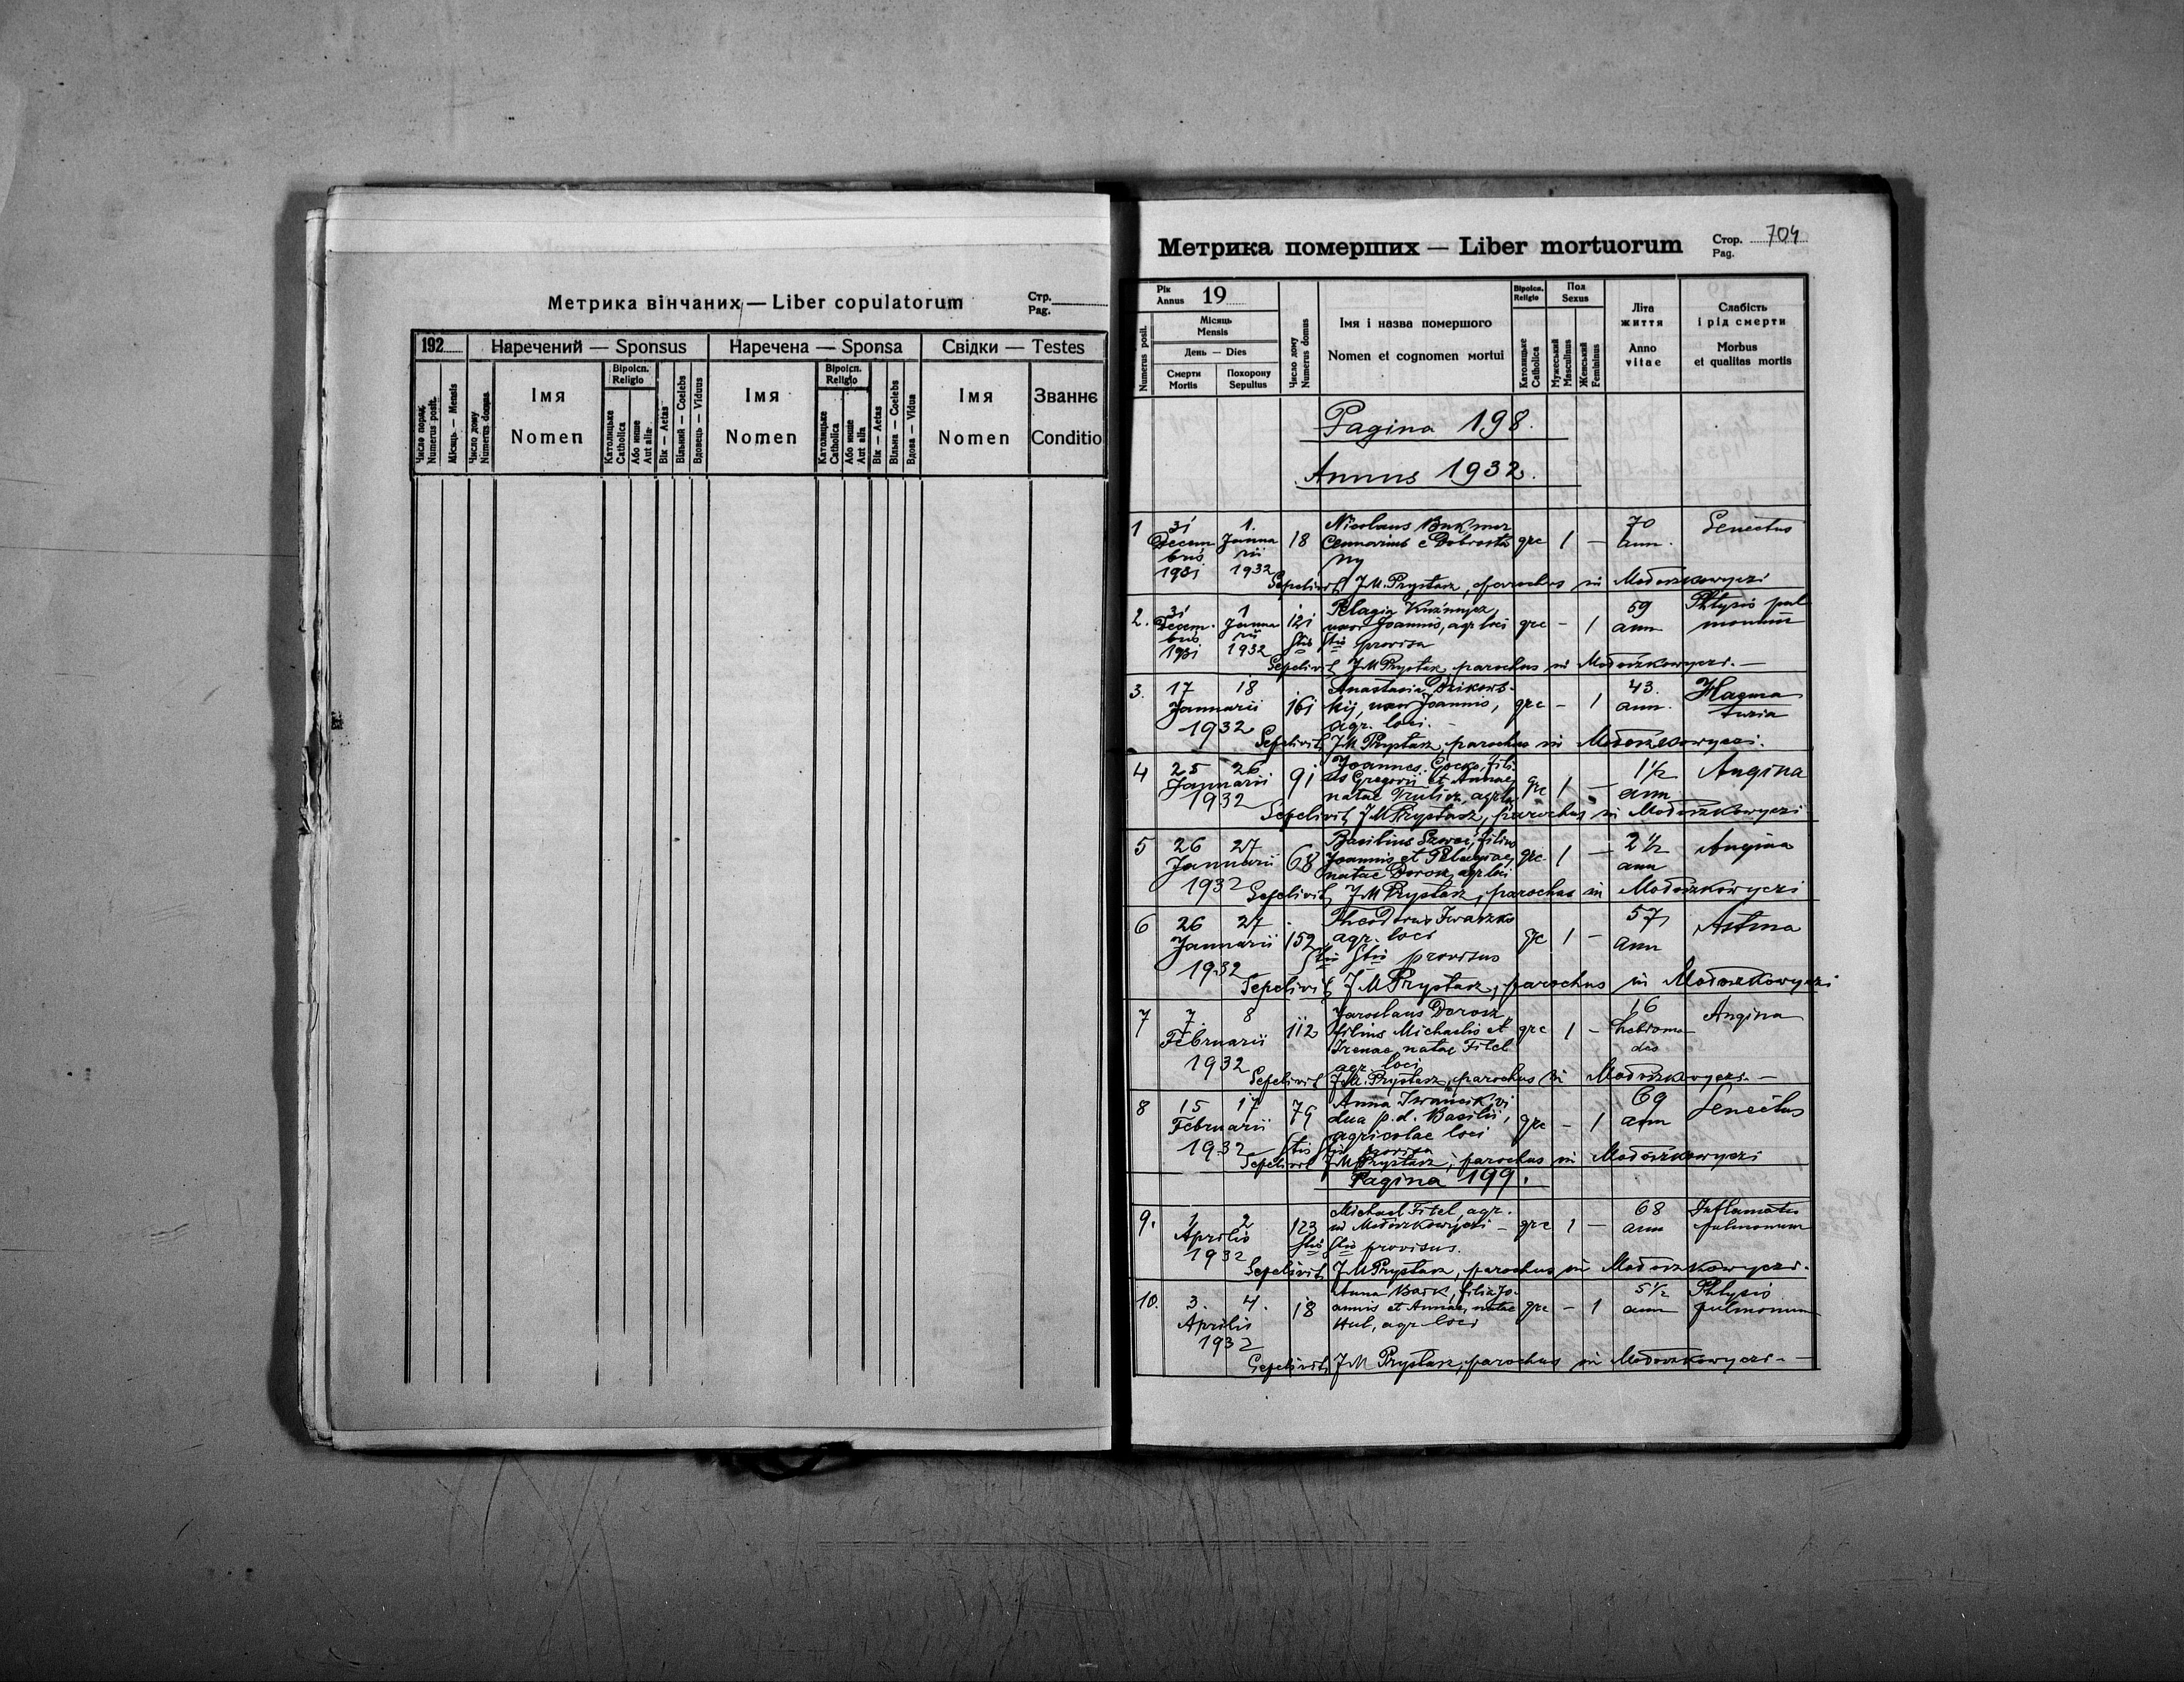 Метрика вінчаних — Liber copulatorum
Стр.
Pag.
192
Наречений — Sponsus
Наречена — Sponsa
Свідки — Testes
Число поряд.
Numerus posit.
Місяць — Mensis
Число дому
Numerus domus
Імя
Nomen
Віроісп.
Religio
Католицьке
Catholica
Або инше
Aut alia
Вік — Aetas
Вільний — Coelebs
Вдовець — Viduus
Імя
Nomen
Віроісп.
Religio
Католицьке
Catholica
Або инше
Aut alia
Вік — Aetas
Вільна — Coelebs
Вдова — Vidua
Імя
Nomen
Званнє
Conditio
Метрика померших — Liber mortuorum
Стор. 704
Pag.
Рік
Annus 19
Numerus posit.
Місяць
Mensis
День — Dies
Смерти
Mortis
Похорону
Sepultus
Число дому
Numerus domus
Імя і назва помершого
Nomen et cognomen мortui
Віроісп.
Religio
Католицьке
Catholica
Пол
Sexus
Мужеський
Masculinus
Женський
Femininus
Літа
життя
Anno
vitae
Слабість
і рід смерти
Morbus
et qualitas mortis
Pagina 198.
Annus 1932.
1 31 Decem bris 1931 1. Janua rii 1932 18 Nicolaus
e Dobrosta
ny
grc 1 — 70 ann. Senectus
Sepelivit J.M. Prystasz, parochus in Modoszkowyczi
2. 31 Decem- bris 1931 1 Janua rii 1932 121 Pelagia
uxor Joannis, agr loci
provisa
grc - 1 59 ann Phtysis pul
monum
Sepelivit JM Prystasz, parochus in Modoszkowyczi. —
3. 17 18 Januarii 1932 161 Anastasia Dzikows-
kij, uxor Joannis,
agr. loci. -
grc - 1 43. ann. Haema
turia
Sepelivit JM Prystasz, parochus in Modoszkowyczi.
4 25 26 Januarii 1932 91 Joannes Gocko, fili
us Gregorii et Annae,
natae
grc 1 - 1½ ann Angina
Sepelivit, JM Prystasz, parochus in Modoszkowyczi
5 26 27 Januarii 1932 68 Basilius Szwec, filius
Joannis et Pelagiae,
natae Dorosz, agr loci
grc 1 — 2½ ann Angina
Sepelivit, JM Prystasz, parochus in Modoszkowyczi
6 26 27 Januarii 1932 152 Theodorus Iwaszko
agr. loci
provisus
grc 1 - 57 ann Astma
Sepelivit JM Prystasz, parochus in Modoszkowyczi
7 7. 8 Februarii 1932 112 Jaroslaus Dorosz,
filius Michaelis et
Irenae, natae Fitel
agr. loci
grc 1 - 16 hebdoma
das
Angina
Sepelivit JM. Prystasz, parochus in Modoszkowyczi. —
8 15 17 Februarii 1932 79 Anna Iwancik, vi
dua p. d. Basilii,
agricolae loci
provisa
grc - 1 69 ann Senectus
Sepelivit JM Prystasz, parochus in Modoszkowyczi
Pagina 199.
9. 1 2 Aprilis 1932 123 Michael Fitel, agr.
in Modoszkowyczi —
provisus.
grc 1 — 68 ann Inflamatio
pulmonum
Sepelivit JM Prystasz, parochus in Modoszkowyczi.
10. 3. 4. Aprilis 1932 18 Anna Bosk, filia Jo-
annis et Annae, natae
Hul, agr loci
grc - 1 5½ ann Phtysis
pulmonum
Sepelivit, JM Prystasz, parochus in Modoszkowyczi. —